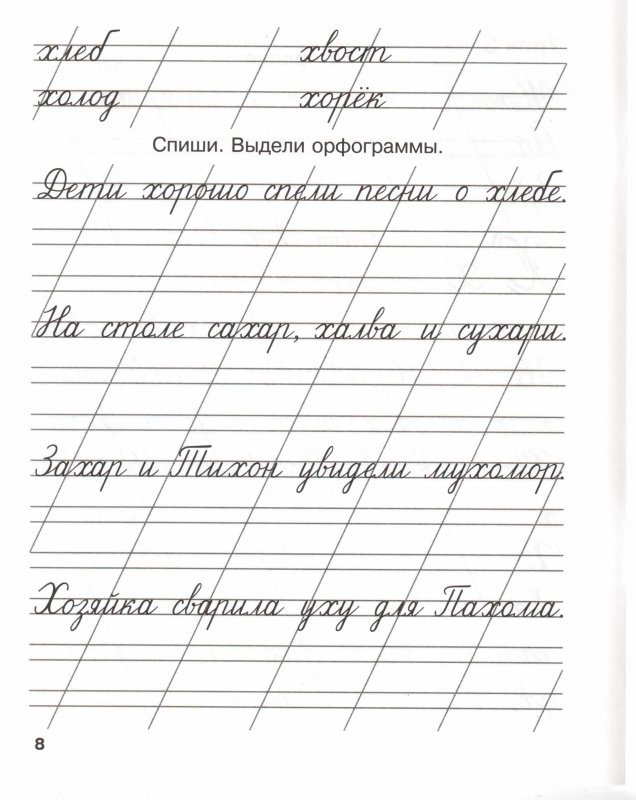 хлеб хвост
холод хорёк
Спиши. Выдели орфограммы.
Дети хорошо спели песни о хлебе.
На столе сахар, халва и сухари.
Захар и Тихон увидели мухомор.
Хозяйка сварила уху для Пахома.
8